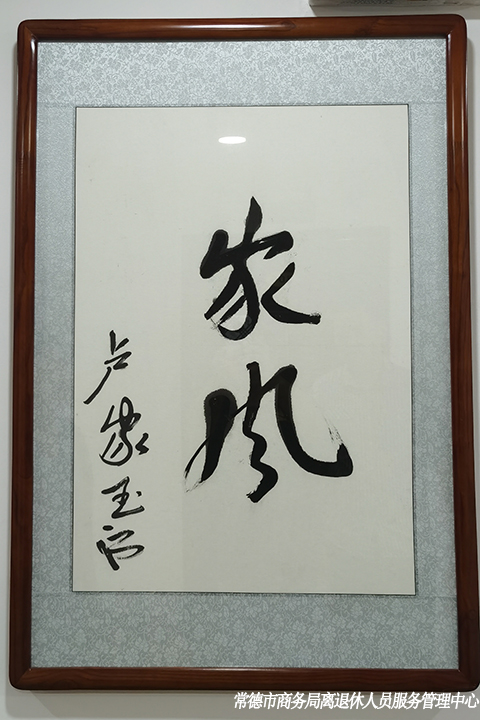 家风
卢家玉
常德市商务局离退休人员服务管理中心